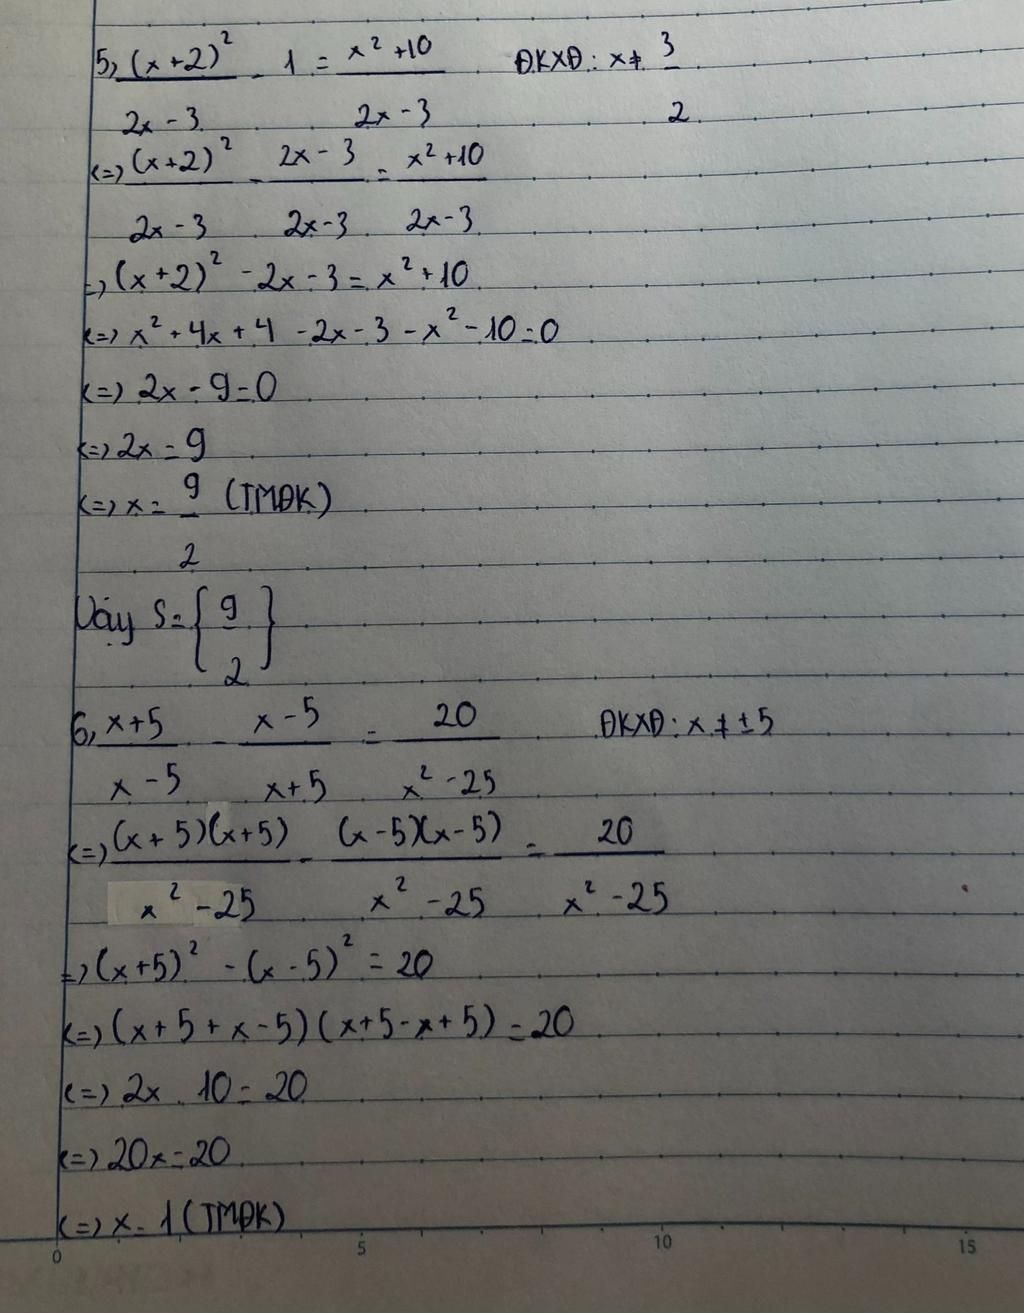 5, (x+2)² / 2x-3 - 1 = x²+10 / 2x-3 ĐKXĐ: x≠ 3/2
<=> (x+2)² / 2x-3 - 2x-3 / 2x-3 = x²+10 / 2x-3
=> (x+2)² - 2x - 3 = x² + 10
<=> x² + 4x + 4 - 2x - 3 - x² - 10 = 0
<=> 2x - 9 = 0
<=> 2x = 9
<=> x = 9/2 (TMĐK)
Vậy S = { 9/2 }
6, x+5 / x-5 - x-5 / x+5 = 20 / x²-25 ĐKXĐ: x ≠ ±5
<=> (x+5)(x+5) / x²-25 - (x-5)(x-5) / x²-25 = 20 / x²-25
=> (x+5)² - (x-5)² = 20
<=> (x+5+x-5)(x+5-x+5) = 20
<=> 2x . 10 = 20
<=> 20x = 20
<=> x = 1 (TMĐK)
0 5 10 15